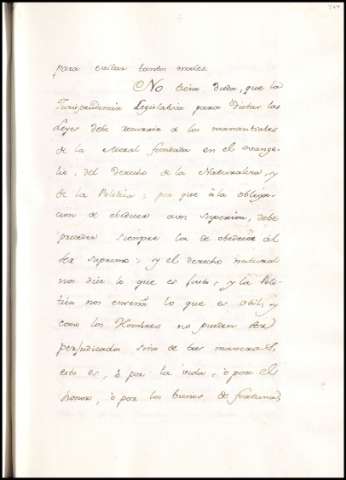 para evitar tantos males.
No tiene duda, que la
Jurisprudencia Legislativa para dictar las
Leyes debe recurrir a los manantiales
de la Moral fundada en el evange-
lio, del Derecho de la Naturaleza, y
de la Politica; por que à la obliga-
cion de obedecer a un superior, debe
preceder siempre la de obedecer al
ser supremo: y el derecho natural
nos dice lo que es justo, y la Poli-
tica nos enseña lo que es util, y
como los Hombres no pueden ser
perjudicados sino de tres maneras,
esto es, ò por la vida, ò por el
honor, ò por los bienes de fortuna,